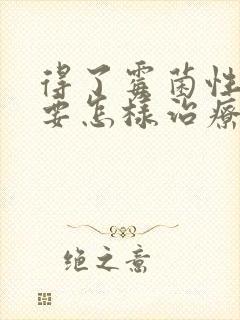 得了霉菌性
要怎样治疗
绝之意